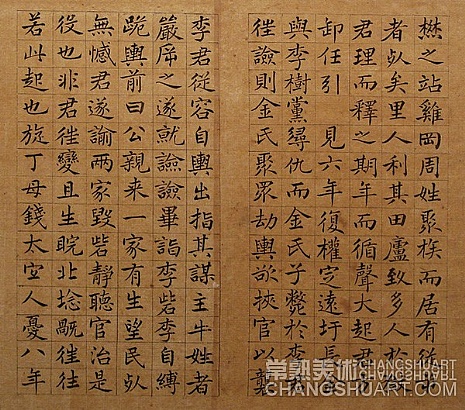 之站雞岡周姓聚族而居有
者死矣里人利其田廬致多人於
君理而釋之期年而循聲大起君
卸任引 見六年復權定遠圩長
與李樹黨尋仇而金氏子斃於李
往譣則金氏聚眾劫輿欲挾官以襲
李君從容自輿出指其謀主牛姓者
嚴斥之遂就譣譣畢詣李砦李自縛
跪輿前曰公親來一家有生望民死
無憾君遂諭兩家毀砦靜聽官治是
役也非君往變且生睆北往往
若此起也旋丁母錢大宜人憂八年
常熟美術 CHANGSHUART
CHANGSHUART.COM